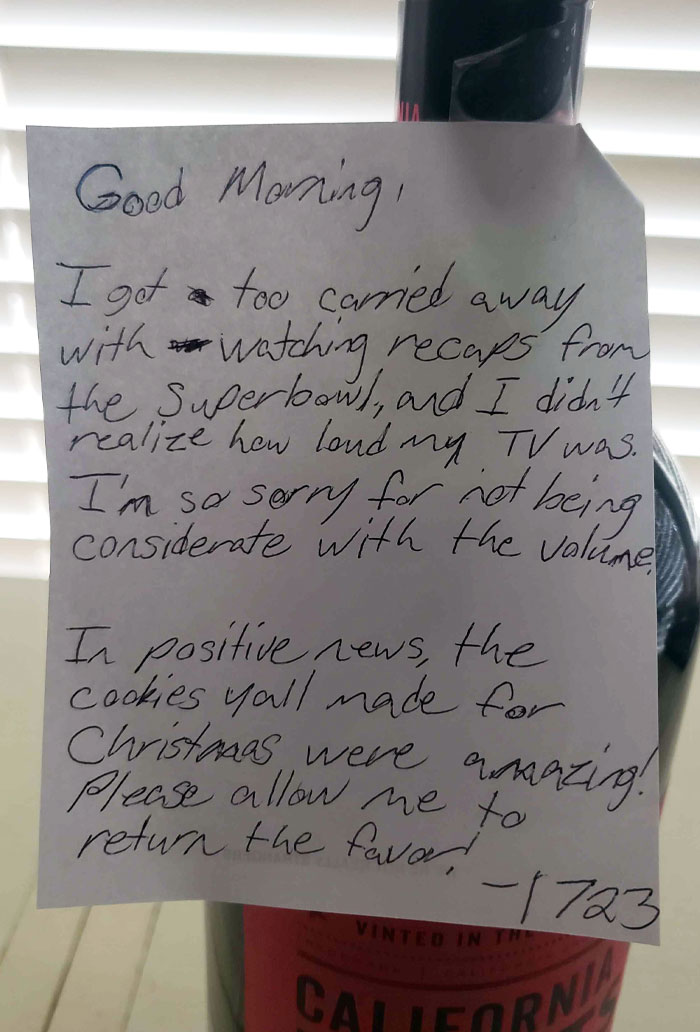 Good Morning,
I got too carried away
with watching recaps from
the Superbowl, and I didn't
realize how loud my TV was.
I'm so sorry for not being
considerate with the volume.
In positive news, the
cookies yall made for
Christmaas were amaazing!
Please allow me to
return the favor!
-1723
VINTED IN TH
CALIFORNIA